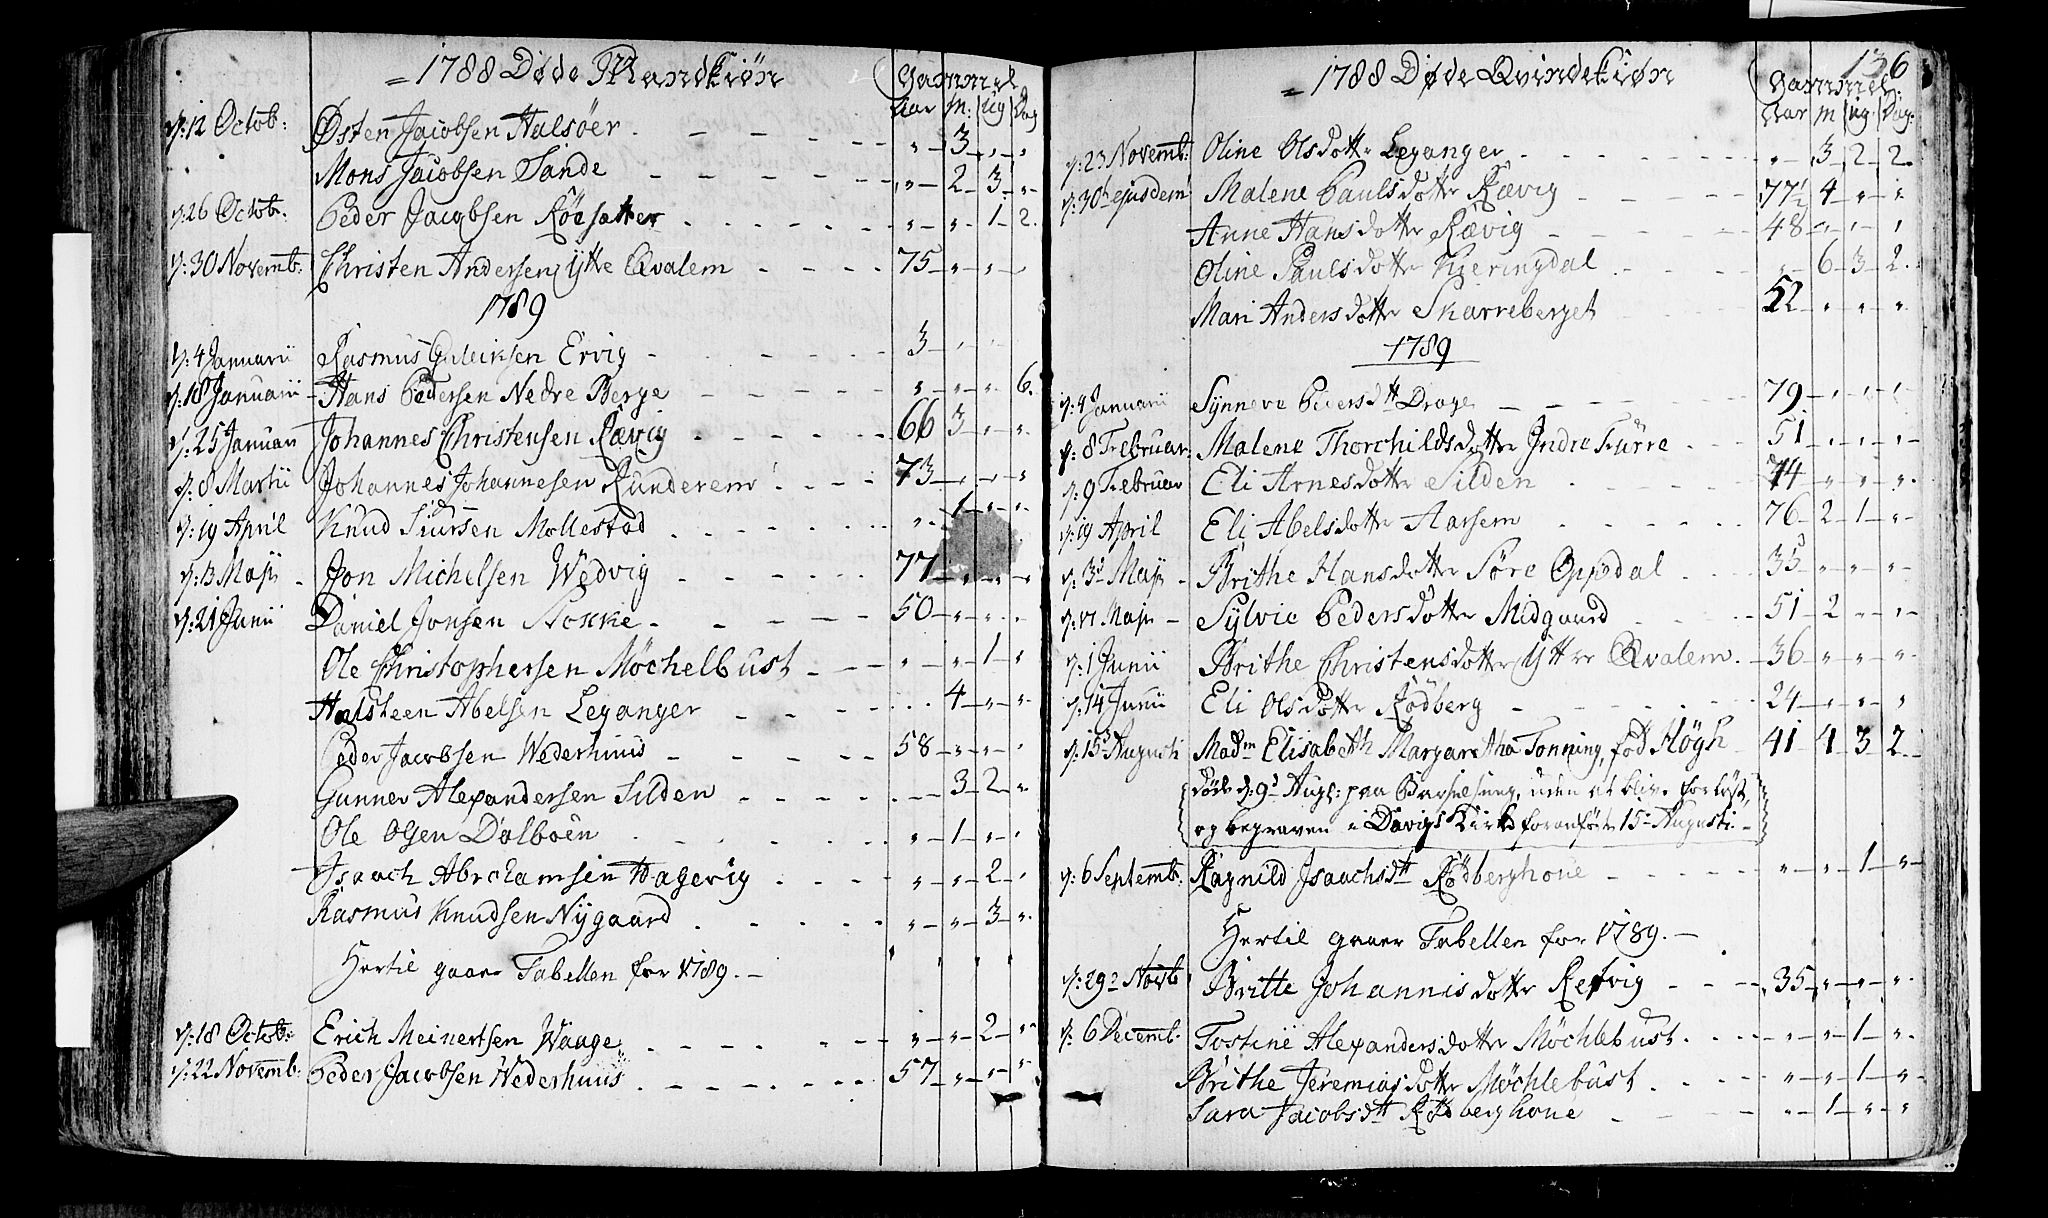 1788 Døde Mandkiøn
Gammel
Aar M: Ug Dag
d: 12 Octob: Østen Jacobsen Halsöer - " - 3 - " - "
Mons Jacobsen Sande - " - 2 - 3 - "
d: 26 Octob. Peder Jacobsen Röesætter - " - " - 1 - 2.
d: 30 Novemb: Christen Andersen Ytte Qvalem - 75 - " - " - "
1789
d: 4 Januarii Rasmus Guleiksen Ervig - 3 - " - "
d: 18 Januarii Hans Pedersen Nedre Berge - " - " - " 6.
d: 25 Januari Johannes Christensen Rævig - 66 3 - " - "
d: 8 Martii Johannes Johannesen Runderem - 73 - " - " - "
d: 19 April Knud Siursen Mollestad - " - 1 - " - "
d: 13 Maji - Jon Michelsen Wedvig - 77 - " - " - "
d: 21 Junii Daniel Jonsen Nokke - 50 - " - " - "
Ole Christophersen Möchelbust - " - " - 1 - "
Halsteen Abelsen Leganger - 4 - " - "
Peder Jacobsen Wederhuus - 58 - " - " - "
Gunner Alexandersen Silden - 3 - 2 - "
Ole Olsen Dalböen - " - 1 - " - "
Isaach Abrahamsen Hagevig - " - " - 2 - "
Rasmus Knudsen Nygaard - " - " - 3 - "
Hertil gaaer Tabellen for 1789. -
d: 18 Octob: Erich Meinertsen Waage - " - " - 2 - "
d: 22 Novemb: Peder Jacobsen Wederhuus - 57 - " - " - "
136
1788 Døde Qvindekiøn
Gammel:
Aar M Ug. Dag.
d: 23 Novemb: Oline Olsdotter Leganger - " - 3 - 2 - 2.
d: 30 ejusdem Malene Paulsdotter Rævig - 77½ 4 - " - "
Anne Hansdotter Rævig - 48 - " - " - "
Oline Paulsdotter Kieringdal - " - 6 - 3 - 2.
Mari Andersdotter Skarreberget 52 - " - " - "
1789
d: 4 Januarii Synneve Pedersdtt Drage - 79 - " - " - "
d: 8 Februar: Malene Thorchildsdotter Indre Furre - 51 - " - " - "
d: 9 Februar Eli Arnesdotter Silden - 44 - " - " - "
d: 19 April Eli Abelsdotter Aarsem - 76 - 2 - 1 - "
d: 3d Maji - Brithe Hansdotter Söre Oppedal - 35 - " - " - "
d: 17 Maji - Sylvie Pedersdotter Midgaard - 51 - 2 - " - "
d: 1 Junii Brithe Christensdotter Ytter Qvalem - 36 - " - " - "
d: 14 Junii Eli Olsdotter Rödberg - 24 - " - " - "
d: 15 Augusti Madm Elisabeth Margaretha Tonning, föd Høgh 41 4 3 2
døde d: 9d Aug: paa Barselseng, uden at blive forløst,
og begraven i Davigs Kirke foranførte 15 Augusti -
d: 6 Septemb. Ragnild Isaachsdtt Rödberghoue - " - " - 1 - "
Hertil gaaer Tabellen for 1789. -
d: 29 Novb Britte Johannisdotter Refvig - 35 - " - " - "
d: 6 Decemb. Tostine Alexandersdotter Möchlebust. - " - " - 1 - "
Brithe Jeremiasdotter Möchlebust - " - " - 1 - "
Sara Jacobsdtt Rödberghoue - " - 1 - " - "